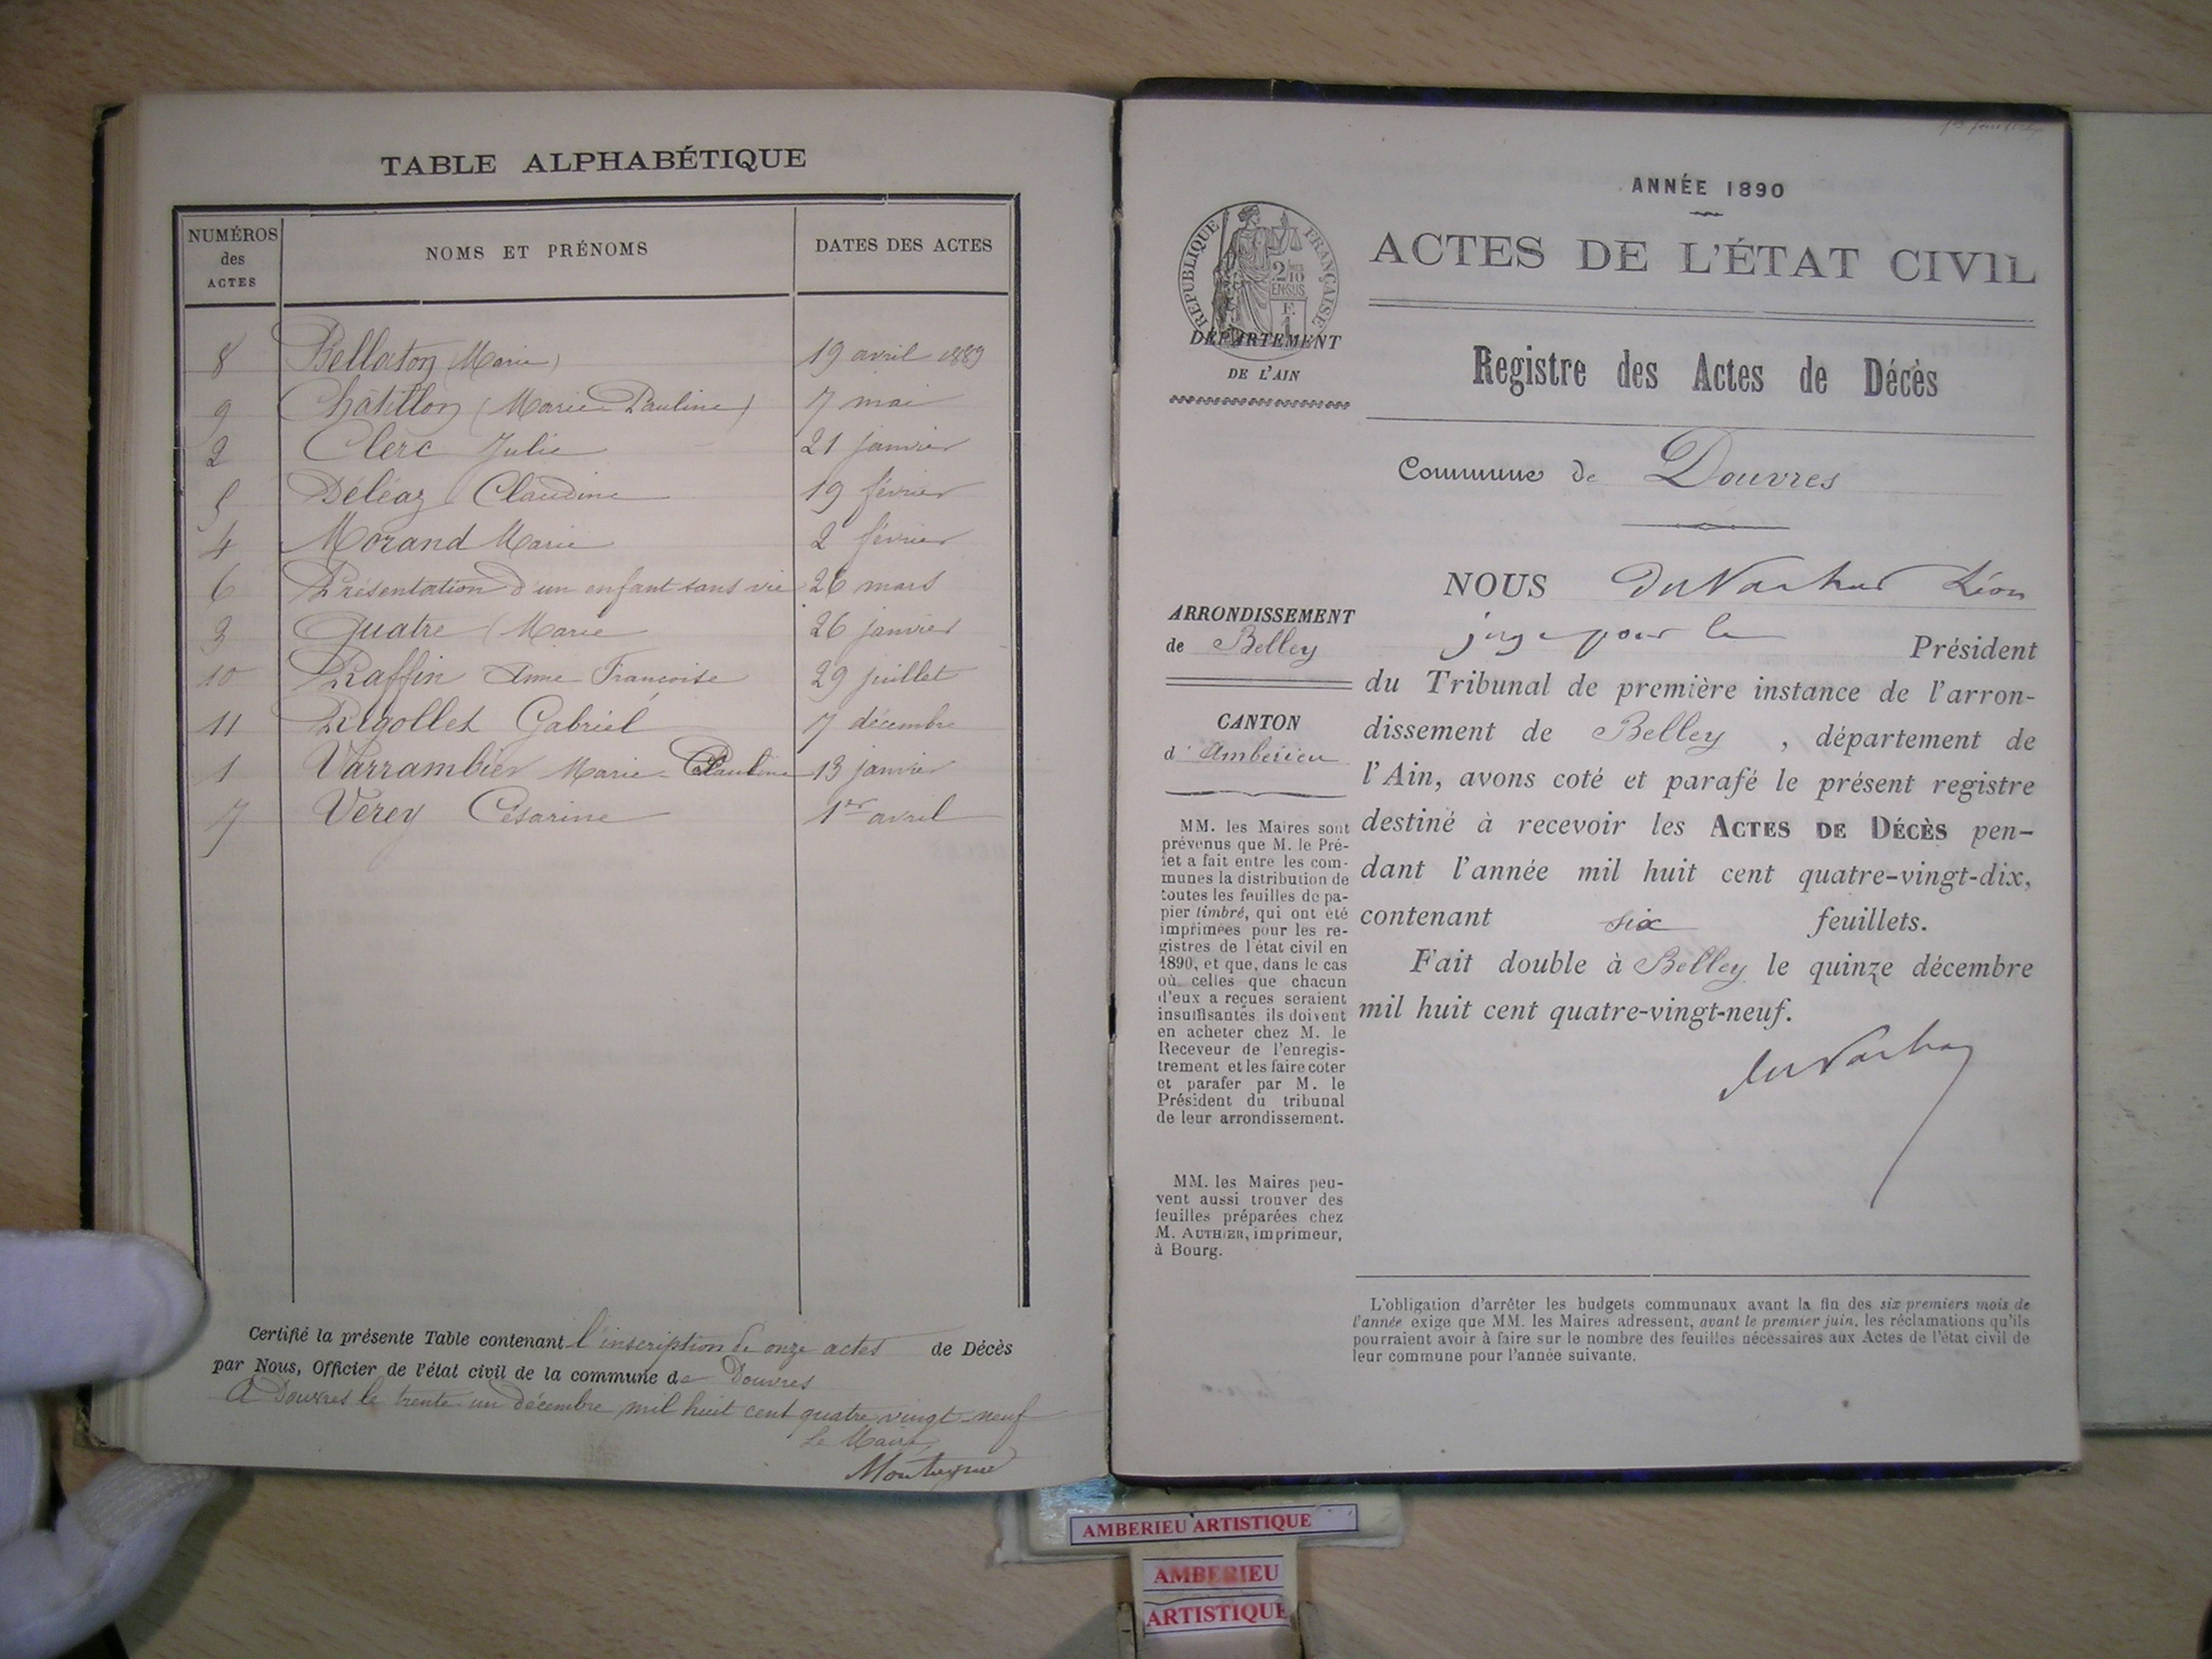 TABLE ALPHABÉTIQUE
NUMÉROS des ACTES
NOMS ET PRÉNOMS
DATES DES ACTES
8 Bellaton (Marie) 19 avril 1889
9 Châtillon (Marie Pauline) 7 mai
2 Clerc Julie 21 janvier
5 Déléaz Claudine 19 février
4 Morand Marie 2 février
6 Présentation d'un enfant sans vie 26 mars
3 Quatre (Marie 26 janvier
10 Raffin Anne Françoise 29 juillet
11 Rigollet Gabriel 7 décembre
1 Varrambier Marie-Pauline 13 janvier
7 Verey Césarine 1er avril
Certifié la présente Table contenant l'inscription de onze actes de Décès
par Nous, Officier de l'état civil de la commune de Douvres
A Douvres le trente-un décembre mil huit cent quatre vingt-neuf
Le Maire,
ANNÉE 1890
ACTES DE L'ÉTAT CIVIL
RÉPUBLIQUE FRANÇAISE
2/10
EN SUS
DÉPARTEMENT
DE L'AIN
Registre des Actes de Décès
Commune de Douvres
ARRONDISSEMENT
de Belley
CANTON
d'Ambérieu
MM. les Maires sont
prévenus que M. le Pré-
fet a fait entre les com-
munes la distribution de
toutes les feuilles de pa-
pier timbré, qui ont été
imprimées pour les re-
gistres de l'état civil en
1890, et que, dans le cas
où celles que chacun
d'eux a reçues seraient
insuffisantes ils doivent
en acheter chez M. le
Receveur de l'enregis-
trement et les faire coter
et parafer par M. le
Président du tribunal
de leur arrondissement.
MM. les Maires peu-
vent aussi trouver des
feuilles préparées chez
M. AUTHIER, imprimeur,
à Bourg.
NOUS Léon
juge pour le Président
du Tribunal de première instance de l'arron-
dissement de Belley, département de
l'Ain, avons coté et parafé le présent registre
destiné à recevoir les ACTES DE DÉCÈS pen-
dant l'année mil huit cent quatre-vingt-dix,
contenant six feuillets.
Fait double à Belley le quinze décembre
mil huit cent quatre-vingt-neuf.
L'obligation d'arrêter les budgets communaux avant la fin des six premiers mois de
l'année exige que MM. les Maires adressent, avant le premier juin, les réclamations qu'ils
pourraient avoir à faire sur le nombre des feuilles nécessaires aux Actes de l'état civil de
leur commune pour l'année suivante.
AMBERIEU ARTISTIQUE
AMBERIEU
ARTISTIQUE